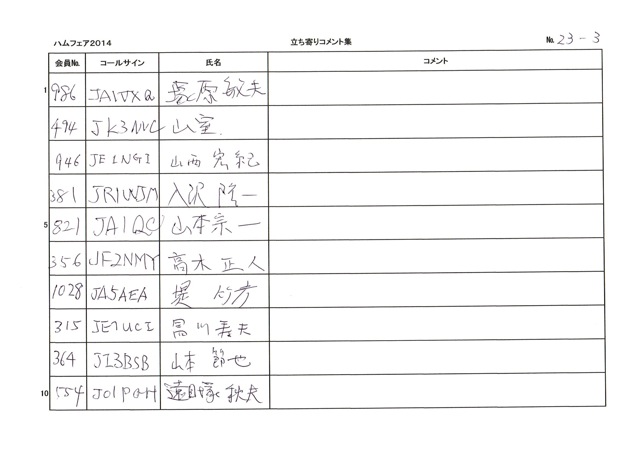 ハムフェア2014 立ち寄りコメント集 No. 23-3
会員No. コールサイン 氏名 コメント
1 986 JA1VXQ 原 敏夫
494 JK3NVC 山室
946 JE1NGI 山西 宏紀
381 JR1UJM 入沢 隆一
5 821 JA1QC 山本宗一
356 JF2NMY 高木 正人
1028 JA5AEA 堤
315 JE7UCI 川 夫
364 JI3BSB 山本 節也
10 554 JO1PGH 遠目塚 秋夫